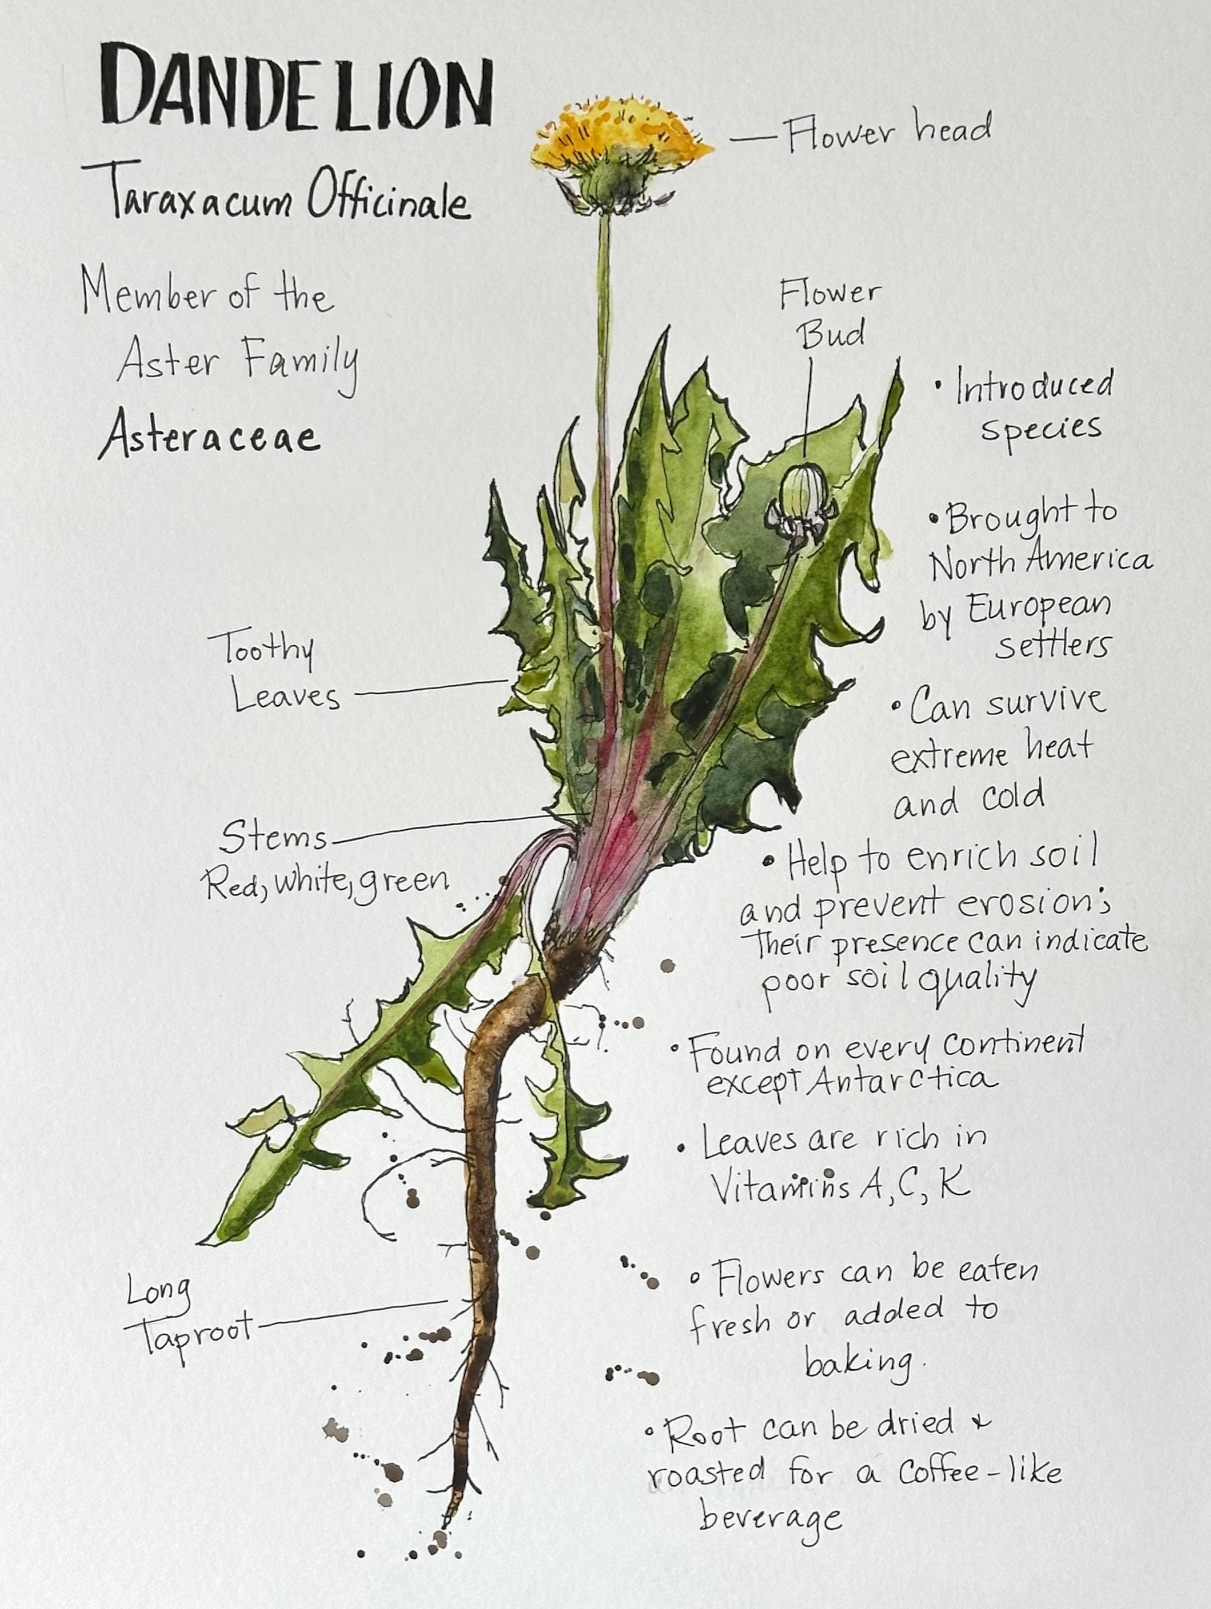 DANDELION
Taraxacum Officinale
Member of the
Aster Family
Asteraceae
Flower head
Flower
Bud
Toothy
Leaves
Stems
Red, white, green
Long
Taproot
• Introduced
species
• Brought to
North America
by European
settlers
• Can survive
extreme heat
and cold
• Help to enrich soil
and prevent erosion;
Their presence can indicate
poor soil quality
• Found on every continent
except Antarctica
• Leaves are rich in
Vitamins A, C, K
• Flowers can be eaten
fresh or added to
baking.
• Root can be dried &
roasted for a coffee-like
beverage